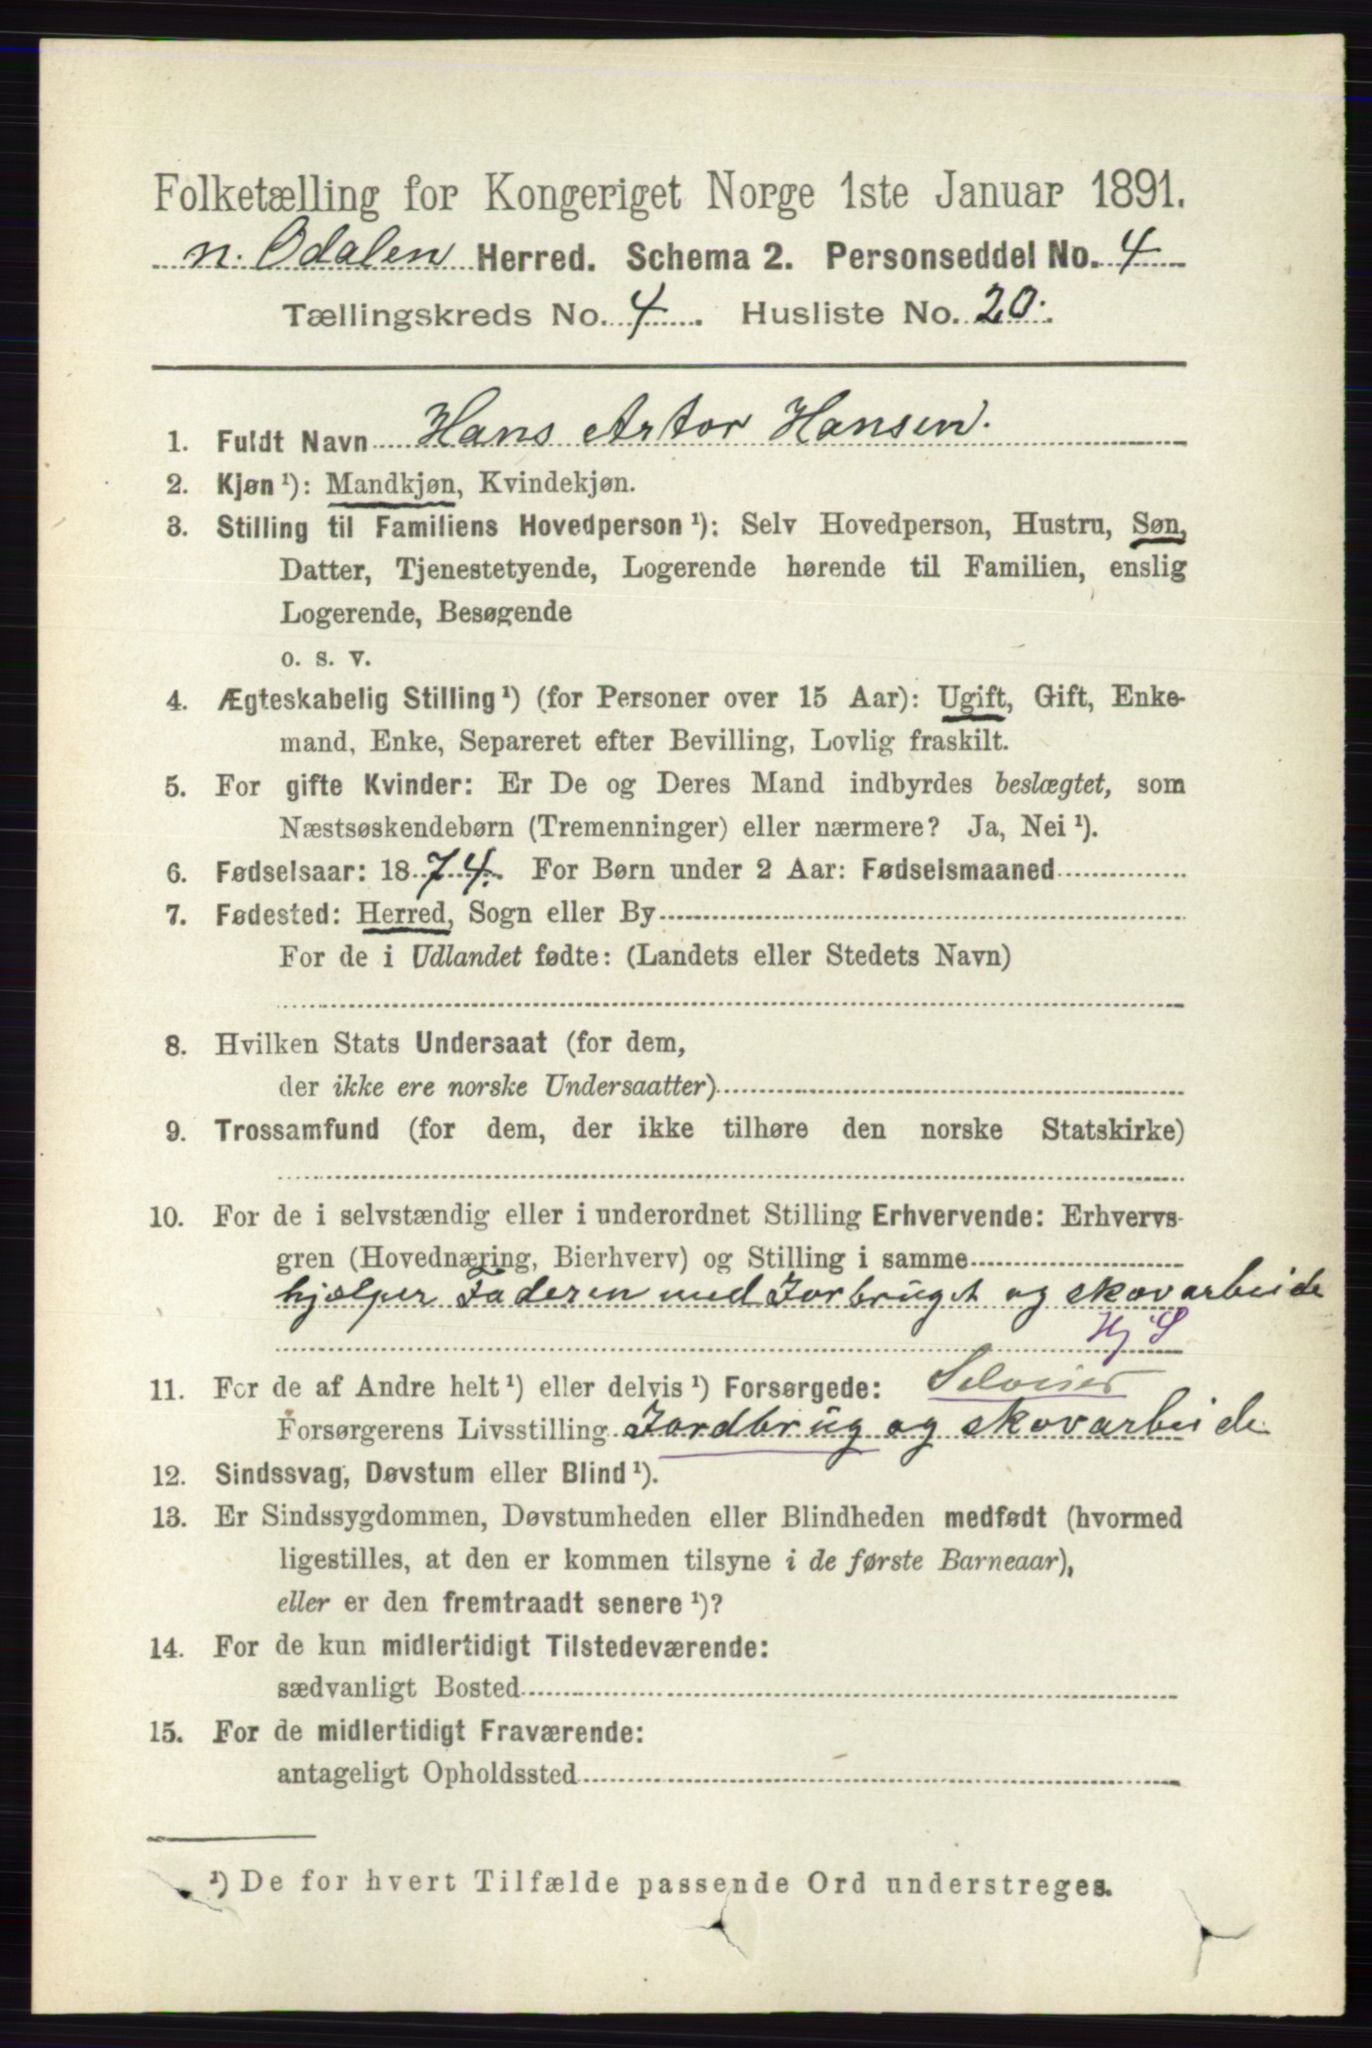 Folketælling for Kongeriget Norge 1ste Januar 1891.
n. Odalen Herred. Schema 2. Personseddel No. 4
Tællingskreds No. 4. Husliste No. 20.
1. Fuldt Navn Hans Artor Hansen.
2. Kjøn ¹): Mandkjøn, Kvindekjøn.
3. Stilling til Familiens Hovedperson ¹): Selv Hovedperson, Hustru, Søn,
Datter, Tjenestetyende, Logerende hørende til Familien, enslig
Logerende, Besøgende
o. s. v.
4. Ægteskabelig Stilling ¹) (for Personer over 15 Aar): Ugift, Gift, Enke-
mand, Enke, Separeret efter Bevilling, Lovlig fraskilt.
5. For gifte Kvinder: Er De og Deres Mand indbyrdes beslægtet, som
Næstsøskendebørn (Tremenninger) eller nærmere? Ja, Nei ¹).
6. Fødselsaar: 1874. For Børn under 2 Aar: Fødselsmaaned
7. Fødested: Herred, Sogn eller By
For de i Udlandet fødte: (Landets eller Stedets Navn)
8. Hvilken Stats Undersaat (for dem,
der ikke ere norske Undersaatter)
9. Trossamfund (for dem, der ikke tilhøre den norske Statskirke)
10. For de i selvstændig eller i underordnet Stilling Erhvervende: Erhvervs-
gren (Hovednæring, Bierhverv) og Stilling i samme
hjælper Faderen med Jorbruget og skovarbeide
Hj S
11. For de af Andre helt ¹) eller delvis ¹) Forsørgede: Selveier
Forsørgerens Livsstilling Jordbrug og skovarbeide
12. Sindssvag, Døvstum eller Blind ¹).
13. Er Sindssygdommen, Døvstumheden eller Blindheden medfødt (hvormed
ligestilles, at den er kommen tilsyne i de første Barneaar),
eller er den fremtraadt senere ¹)?
14. For de kun midlertidigt Tilstedeværende:
sædvanligt Bosted
15. For de midlertidigt Fraværende:
antageligt Opholdssted
¹) De for hvert Tilfælde passende Ord understreges.